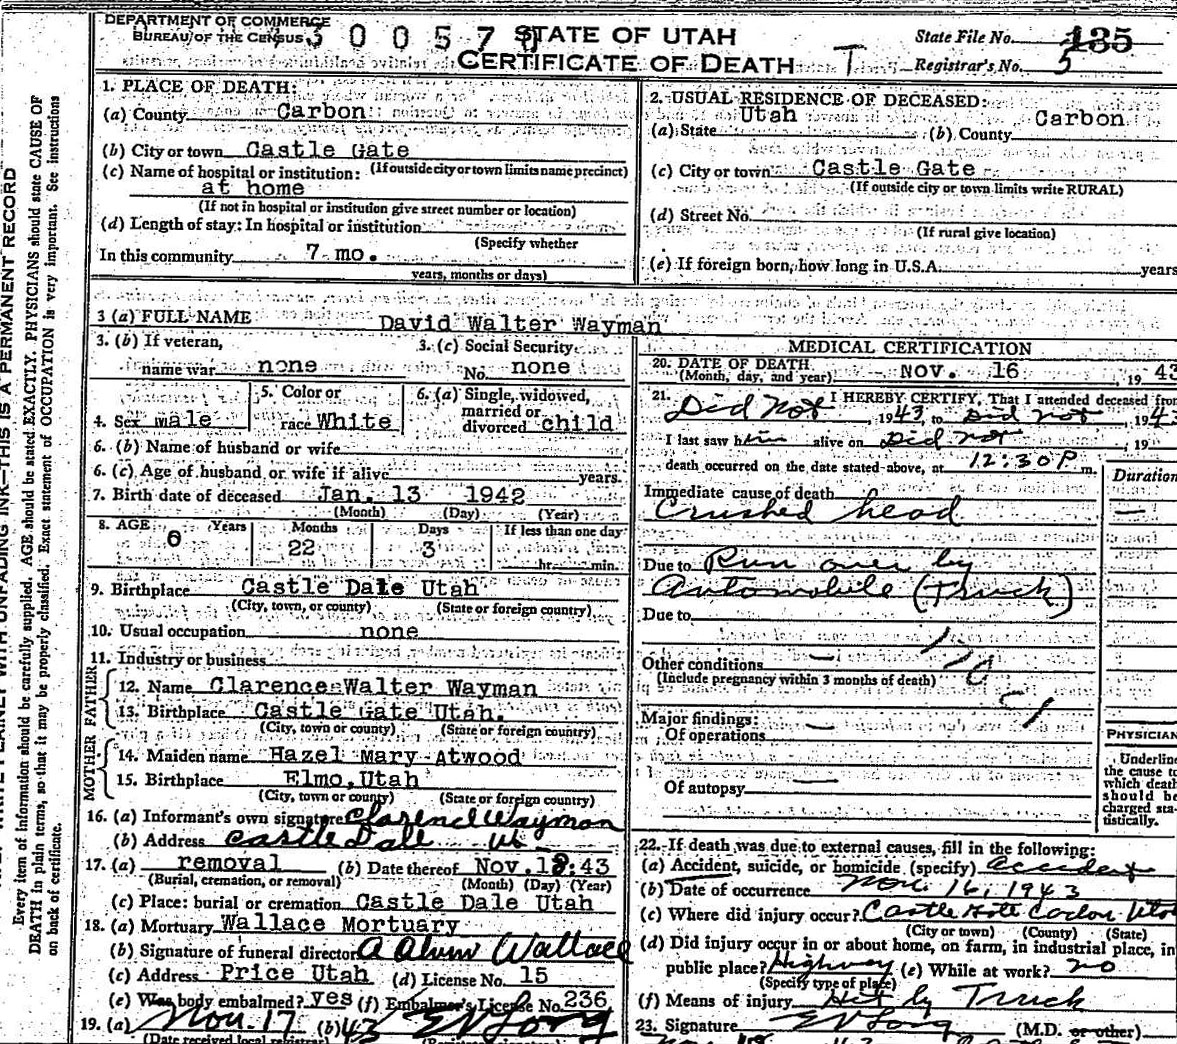 DEPARTMENT OF COMMERCE
BUREAU OF THE CENSUS
STATE OF UTAH
CERTIFICATE OF DEATH
State File No. 135
Registrar's No. 5
1. PLACE OF DEATH:
(a) County Carbon
(b) City or town Castle Gate
(If outside city or town limits name precinct)
(c) Name of hospital or institution:
at home
(If not in hospital or institution give street number or location)
(d) Length of stay: In hospital or institution
(Specify whether
In this community 7 mo.
years, months or days)
2. USUAL RESIDENCE OF DECEASED:
(a) State Utah (b) County Carbon
(c) City or town Castle Gate
(If outside city or town limits write RURAL)
(d) Street No.
(If rural give location)
(e) If foreign born, how long in U.S.A. years
3 (a) FULL NAME David Walter Wayman
3. (b) If veteran,
name war none
3. (c) Social Security
No. none
4. Sex male
5. Color or
race White
6. (a) Single, widowed,
married or
divorced child
6. (b) Name of husband or wife
6. (c) Age of husband or wife if alive years.
7. Birth date of deceased Jan. 13 1942
(Month) (Day) (Year)
8. AGE Years Months Days If less than one day
0 22 3 hr. min.
9. Birthplace Castle Dale Utah
(City, town, or county) (State or foreign country)
10. Usual occupation none
11. Industry or business
FATHER
12. Name Clarence Walter Wayman
13. Birthplace Castle Gate Utah.
(City, town or county) (State or foreign country)
MOTHER
14. Maiden name Hazel Mary Atwood
15. Birthplace Elmo, Utah
(City, town or county) (State or foreign country)
16. (a) Informant's own signature Clarence Wayman
(b) Address Castle Dale Ut
17. (a) removal (b) Date thereof Nov. 18:43
(Burial, cremation, or removal) (Month) (Day) (Year)
(c) Place: burial or cremation Castle Dale Utah
18. (a) Mortuary Wallace Mortuary
(b) Signature of funeral director A Alvin Wallace
(c) Address Price Utah (d) License No. 15
(e) Was body embalmed? yes (f) Embalmer's License No. 236
19. (a) Nov. 17 (b) 43 E V Long
(Date received local registrar)
MEDICAL CERTIFICATION
20. DATE OF DEATH
(Month, day, and year) NOV. 16, 1943
21. I HEREBY CERTIFY, That I attended deceased from
Did Not, 1943, to Did not, 194
I last saw him alive on Did not, 19
death occurred on the date stated above, at 12:30 P m.
Duration
Immediate cause of death
Crushed head —
Due to Run over by
Automobile (Truck)
Due to
Other conditions —
(Include pregnancy within 3 months of death)
Major findings:
Of operations —
Of autopsy —
PHYSICIAN
Underline
the cause to
which death
should be
charged sta-
tistically.
22. If death was due to external causes, fill in the following:
(a) Accident, suicide, or homicide (specify) accident
(b) Date of occurrence Nov. 16, 1943
(c) Where did injury occur? Castle Gate Carbon Utah
(City or town) (County) (State)
(d) Did injury occur in or about home, on farm, in industrial place, in
public place? Highway (e) While at work? no
(Specify type of place)
(f) Means of injury Hit by Truck
23. Signature E V Long (M.D. or other)
Every item of information should be carefully supplied. AGE should be stated EXACTLY. PHYSICIANS should state CAUSE OF
DEATH in plain terms, so that it may be properly classified. Exact statement of OCCUPATION is very important. See instructions
on back of certificate.
WITH UNFADING INK—THIS IS A PERMANENT RECORD